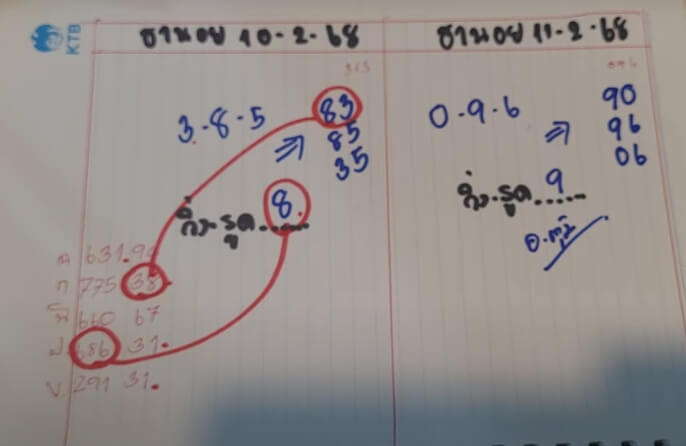 KTB
ฮานอย 10-2-68
383
3-8-5 ⇒ 83
85
35
วิ่ง-รูด 8
631.94
ท 775 38
660 67
686 31.
บ 291 31.
ฮานอย 11-2-68
096
0-9-6 ⇒ 90
96
06
วิ่ง-รูด 9